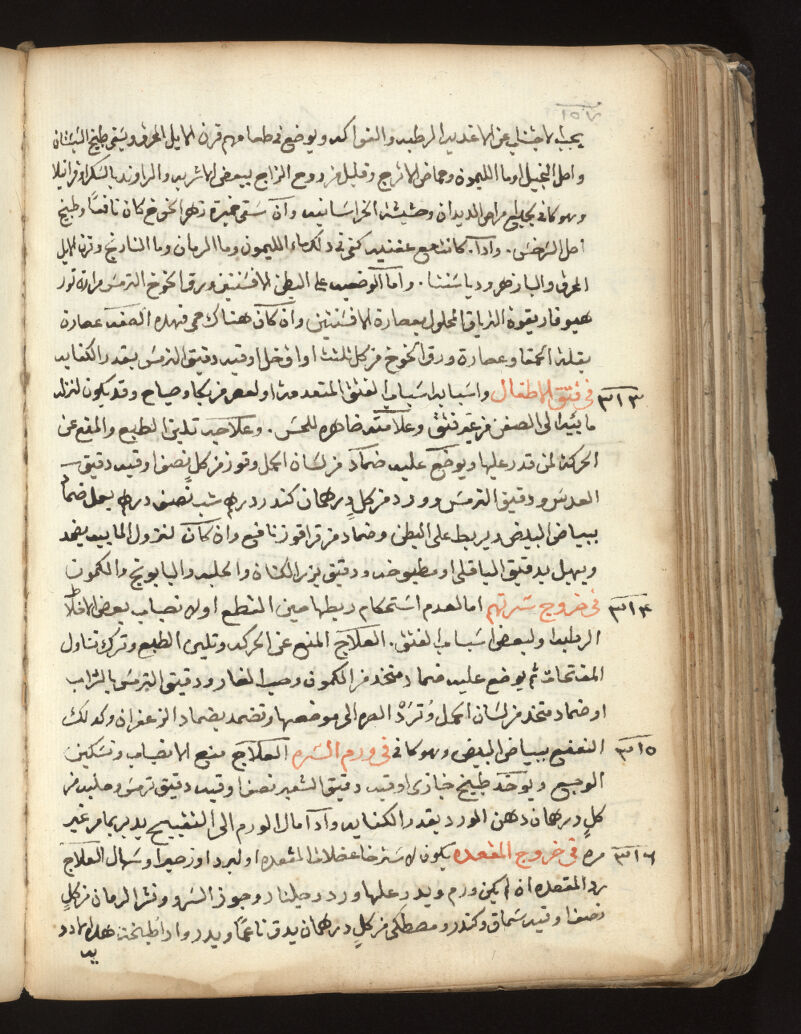 ١٥٧
يجب الاجتناب عن الاغذيه الرطبه والفواكه ويوضع في طعامهم قرن الايل المحرق ويسقى طبيخ
واصل النجيل او ما الليمون وحماض الاترج وقليل من روح الزاج ببعض الاشربه والراوند بالسكر
وهو كافي بجميع مراهي الديدان وحشيشة الخراسانيه وان سقى خميرة زهر الخوخ كان نافعا وطبيخ
اصل السرخس . واذا كانت مع عفنيه كفى في ذلك ماء الليمون وما الرمان وما النارنج وقرن الايل
المحرق والبازهر ودياسنتا . واما الوضعيه على البطن الافسنتين وورق الخوخ الترمس مرارة ثور
هيوفاريقوه الترياق المحلول بعصارة الافسنتين وان كان هناك حمى فهذه الصفه عصارة
بقلة الحمقا وعصارة ورق الخوخ من كل ثلث اواق خل اوقيه دقيق الترمس بقدر الكفايه
٣ في فتق الاطفال واسبابه اسباب الفتق المتعدمه او لعص من بكا وصياح وقد يكون لنزله
مائيه الى الصفن من غير فتق وعلامته ظاهره للحس . وعلاجه تليين الطبع والمنع عن
الحركه لمن قدر عليها ويوضع عليه ضماد من لسان الحمل وقوز من كل نصف اوقيه دقيق
العدس ودقيق الترمس وورد من كل درهمان كندر درهم شب نصف درهم يعمل ضماد
ببياض البيض ويربط على البطن وضماد من قراقوز نافع وان كان لنزول المائيه يضمد
ويهيل بدقيق الباقلى او مطبوخه ودقيق بزر الكتان والحلبه والبابونج والكمون
٤ في خروج سرتهم اما لعدم استحكام ربطها حين القطع او لانصباب بعض الاخلاط
الرطبه او لبعض اسباب الفتق . العلاج المنع عن الحركه وتليين الطبع وترك تناول
المنفتحات ثم يوضع عليه ضماد متخذ من الكمون وحب الغار ودقيق الترمس بالشراب
او ضماد متخذ من لسان الحمل وترد السره الى موضعها وتضمد بضماد الزعفران وكذلك
٥ التعفيع ببياض البيض وهو كافي في ورم السره العلاج منع الانصباب وتسكين
الوجع ويوخذ طبيخ خبازى اوقيه دقيق الشعير نصف اوقيه دقيق ترمس وحلبه من
كل درهمان دهن الورد بقدر الكفايه واذا مال الورم الى التقييح يدبر بما مر غير
٦ مره في خروج المقعده يكون لاسترخا عضلات المقعده او لبرد او زحير او سهال العلاج
رد المقعده ان لم يكن ورم ويدر عليها ورد وجلنار وجوز السرو وقشر الرمان من كل
نصف اوقيه سماق وكندر ومصطكى من كل درهمان يدق ناعما ويدر واذا طبخت هذه الادو
يه